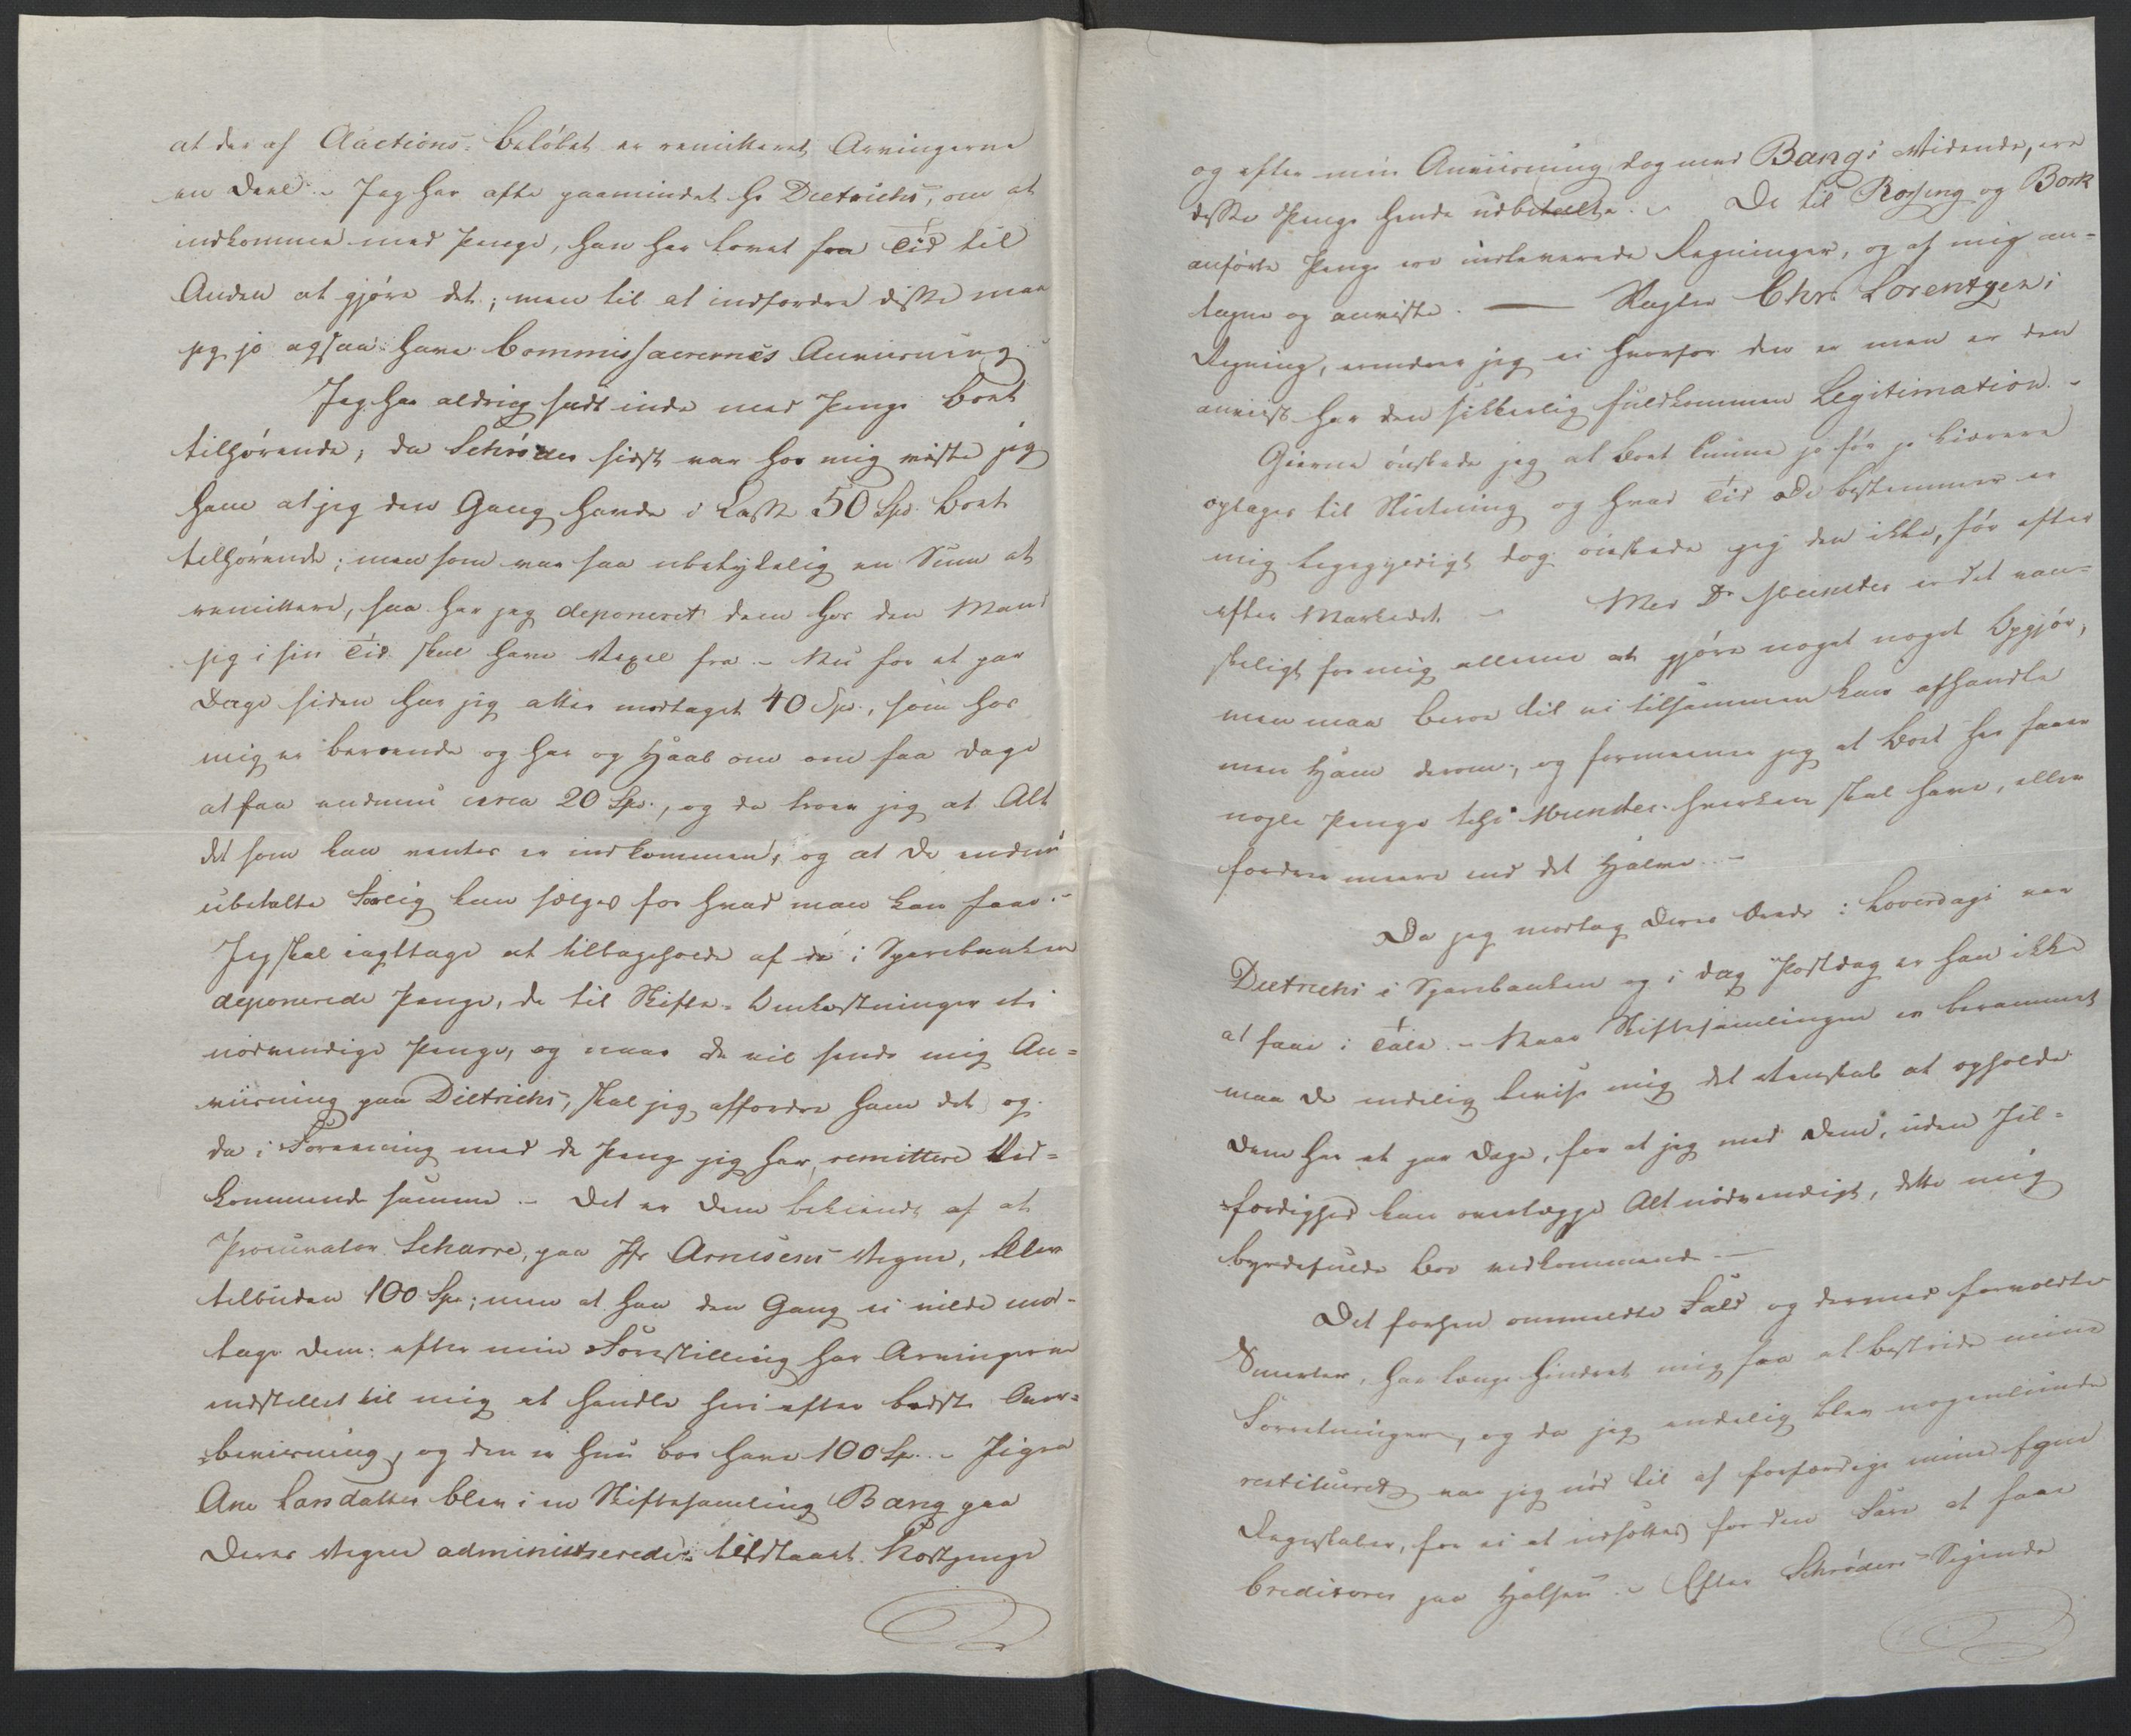 at der af Auctions-Beløbet er remitteret Arvingerne
en Deel. - Jeg har ofte paamindet Hr Dietrichs, om at
indkomme med Penge, han har lovet fra Tid til
Anden at gjøre det; men til at indfordre disse maa
jeg jo ogsaa have Commissairernes Anviisning.
Jeg har aldrig siddt inde med Penge Boet
tilhørende; da Schrøder sidst var hos mig viiste jeg
ham at jeg den Gang havde i Casse 50 Spd. Boet
tilhørende; men som var saa ubetydelig en Sum at
remittere, saa har jeg deponeret dem hos den Mand
jeg i sin Tid skal have Vexel fra. - Nu for et par
Dage siden har jeg atter modtaget 40 Sp., som hos
mig er beroende og har og Haab om om faa Dage
at faa endnu circa 20 Sp., og da troer jeg at Alt
det som kan ventes er indkommen, og at de endnu
ubetalte kun sælges for hvad man kan faae. -
Jeg skal iagttage at tilbageholde af de i Sparebanken
deponerede Penge, de til Skifte-Omkostninger etc
nødvendige Penge, og naar De vil sende mig An=
viisning paa Dietrichs, skal jeg affordre ham det og
da i Forening med de Penge jeg har, remittere Ved=
kommende samme. - Det er Dem bekiendt af at
Procurator Scharre, paa Hr Arnesens Vegne, blev
tilbuden 100 Sp.; men at han den Gang ei vilde mod-
tage dem: efter min Forestilling har Arvingerne
indstillet til mig at handle heri efter bedste Over=
beviisning, og den er hun bør have 100 Sp. - Pigen
Ane Larsdatter blev i en Skiftesamling Bang paa
Deres Vegne administrerede, tilstaaet Kostpenge
og efter min Anviisning dog med Bangs Vidende, ere
disse Penge hende udbetalte. - De til Rosing og Bork
anførte Penge ere indleverede Regninger, og af mig an=
tagne og anviiste. - Chr. Lorentzens
Regning, erindrer jeg ei hvorfor den er men er den
anviist har den sikkerlig fuldkommen Legitimation. -
Gierne ønskede jeg at Boet kunne jo før jo kiærere
optages til Slutning og hvad Tid De bestemmer er
mig ligegyldigt dog ønskede jeg den ikke, før efter
efter Markedet. - Med Dr Munster er det van=
skeligt for mig allene at gjøre noget noget Opgjør,
men maa beroe til vi tilsammen kan afhandle
med Ham derom; og formeener jeg at Boet her faaer
nogle Penge thi Munster hverken skal have, eller
fordre meere end det Halve. -
Da jeg modtog Deres Ærede i Løverdags var
Dietrichs i Sparebanken og i Dag Postdag er han ikke
at faae i Tale. - Naar Skiftesamlingen er berammet
maa De endelig beviise mig det Venskab at opholde
Dem her et par Dage, for at jeg med Dem, uden Iil=
færdighed kan overlægge Alt nødvendigt, dette mig
byrdefulde Boe vedkommende. -
Det forhen ommeldte Fald og dermed forvoldte
Smerter, har længe hindret mig fra at bestride mine
Forretninger, og da jeg endelig blev nogenlunde
restitueret var jeg nød til at forfærdige mine Egne
Regnskaber, for ei at udsættes for den Fare at faae
Creditores paa Halsen. - Efter Schrøders Sigende